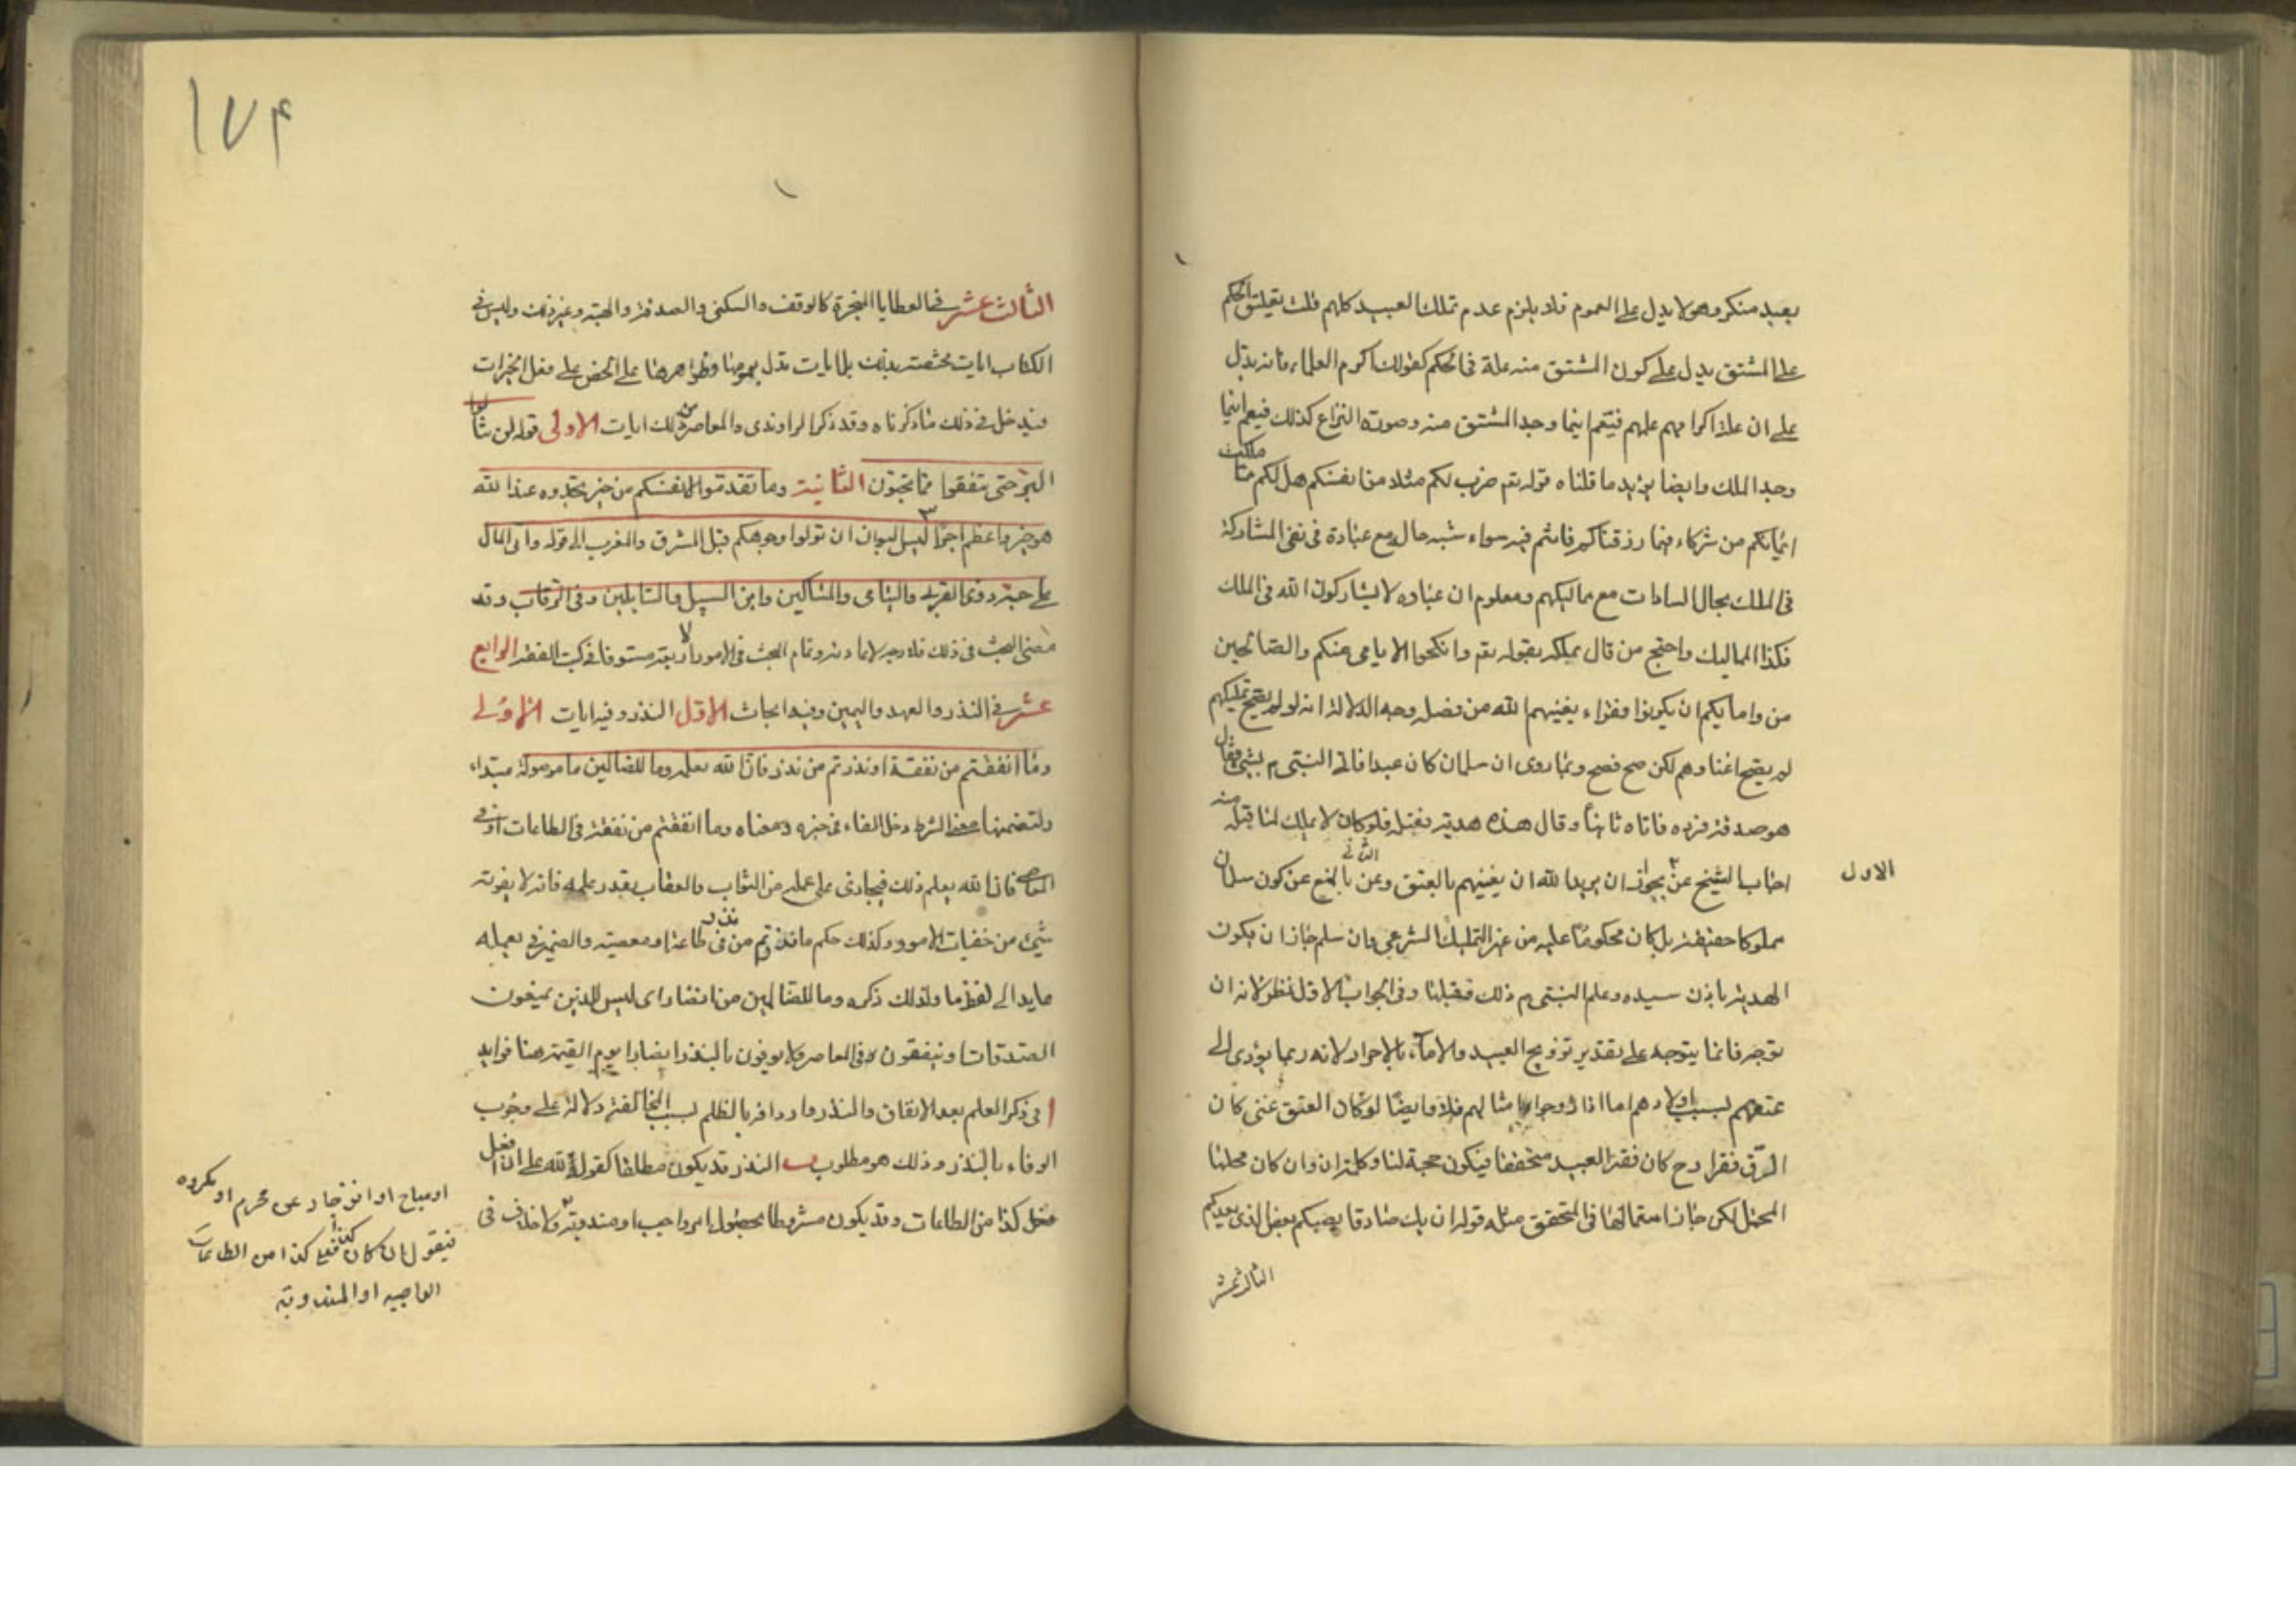 بعبد منكر وهو لا يدل على العموم فلا يلزم عدم تملك العبيد كلهم قلت تعليق الحكم
على المشتق يدل على كون المشتق منه علة فى الحكم كقولك اكرم العلماء فانه يدل
على ان علة اكرامهم علمهم فيعم اينما وجد المشتق منه وصورة النزاع كذلك فيعم اينما
وجد الملك وايضا يزيد ما قلناه قوله تعم ضرب لكم مثلا من انفسكم هل لكم مما ملكت
ايمانكم من شركاء فيما رزقناكم فانتم فيه سواء شبه حاله مع عباده فى نفى المشاركة
فى الملك بحال السادات مع مماليكهم ومعلوم ان عباده لا يشاركون الله فى الملك
فكذا المماليك واحتج من قال بملكه بقوله تعم وانكحوا الايامى منكم والصالحين
من وامايكم ان يكونوا فقراء يغنيهم الله من فضله وجه الدلالة انه لو لم يصح تمليكهم
لم يصح اغناوهم لكن صح فصح وبما روى ان سلمان كان عبدا فاتى النبى م بشئ فقال
هو صدقة فرده فاتاه ثانيا وقال هذه هدية فقبله فلو كان لا يملك لما قبله منه
اجاب الشيخ عن بجواز ان يريد الله ان يغنيهم بالعتق وعن الثانى بالمنع عن كون سلمان
الاول
مملوكا حقيقة بل كان محكوما عليه من غير التمليك الشرعى وان سلم جاز ان يكون
الهدية باذن سيده وعلم النبى م ذلك فقبلها وفى الجواب الاول نظر لانه ان
توجه فانما يتوجه على تقدير تزويج العبيد والامآء بالاحرار لانه ربما يؤدى الى
عتقهم بسبب اولادهم اما اذا زوجوا بامثالهم فلا وايضا لو كان العتق غنى كان
الرق فقرا وح كان فقر العبيد متحققا فيكون حجة لنا وكلمة ان وان كان محلها
المحتمل لكن جاز استمالها فى المتحقق مثله قوله ان يك صادقا يصبكم بعض الذى يعدكم
الثالث عشر
١٧٤
الثالث عشر فى العطايا المنجزة كالوقف والسكنى والصدقة والهبة وغير ذلك وليس فى
الكتاب ايات مختصة بذلك بل ايات تدل بعمومها وظواهرها على الحض على فعل الخيرات
فيدخل فى ذلك ما ذكرناه وقد ذكر الراوندى والمعاصر من ذلك ايات الاولى قوله لن تنالوا
البر حتى تنفقوا مما تحبون الثانية وما تقدموا لانفسكم من خير تجدوه عند الله
هو خيرا واعظم اجرا ٣ ليس البر ان تولوا وجوهكم قبل المشرق والمغرب الى قوله واتى المال
على حبه ذوى القربى واليتامى والمساكين وابن السبيل والسايلين وفى الرقاب وقد
مضى البحث فى ذلك فلا وجه لاعادته وتمام البحث فى الامور الاربعة مستوفا فى كتب الفقه الرابع
عشر فى النذر والعهد واليمين وفيه ابحاث الاول النذر وفيه ايات الاولى
وما انفقتم من نفقة او نذرتم من نذر فان الله يعلمه وما للضالين ما موصولة مبتداء
ولتضمنها معنى الشرط دخل الفاء فى خبره ومعناه وما انفقتم من نفقة فى الطاعات او فى
المعاصى فان الله يعلم ذلك فيجازى على عمله من الثواب والعقاب بقدر علمه فانه لا يفوته
شئ من خفيات الامور وكذلك حكم ما نذرتم من نذر فى طاعة او معصية والضمير فى يعمله
عايد الى لفظ ما ولذلك ذكره وما للضالين من انصار اى ليس للذين يمنعون
الصدقات او ينفقون فى المعاصى ولا يوفون بالنذر انصارا يوم القيمة هنا فوايد
ا فى ذكر العلم بعد الانفاق والنذر واردافه بالظلم بسبب المخالفة دلالة على وجوب
الوفاء بالنذر وذلك هو مطلوب ب النذر قد يكون مطلقا كقوله لله على ان افعل
فعل كذا من الطاعات وقد يكون مشروطا بحصول امر واجب او مندوبة ولا خلاف فى
او مباح او انزجار عن محرم او مكروه
فيقول ان كان كذا فعلى كذا من الطاعات
الواجبه او المندوبة